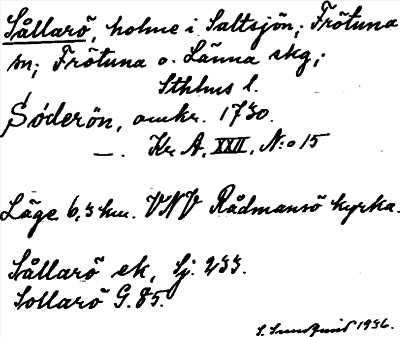 Sållarö, holme i Saltsjön; Frötuna
sn; Frötuna o. Länna skg;
Sthlms l.
Söderön, omkr. 1730.
—. Kr. A. XXII, N:o 15
Läge 6,3 km. VNV Rådmansö kyrka.
Sållarö ek, Sj. 233.
Sollarö G. 85.
1936.